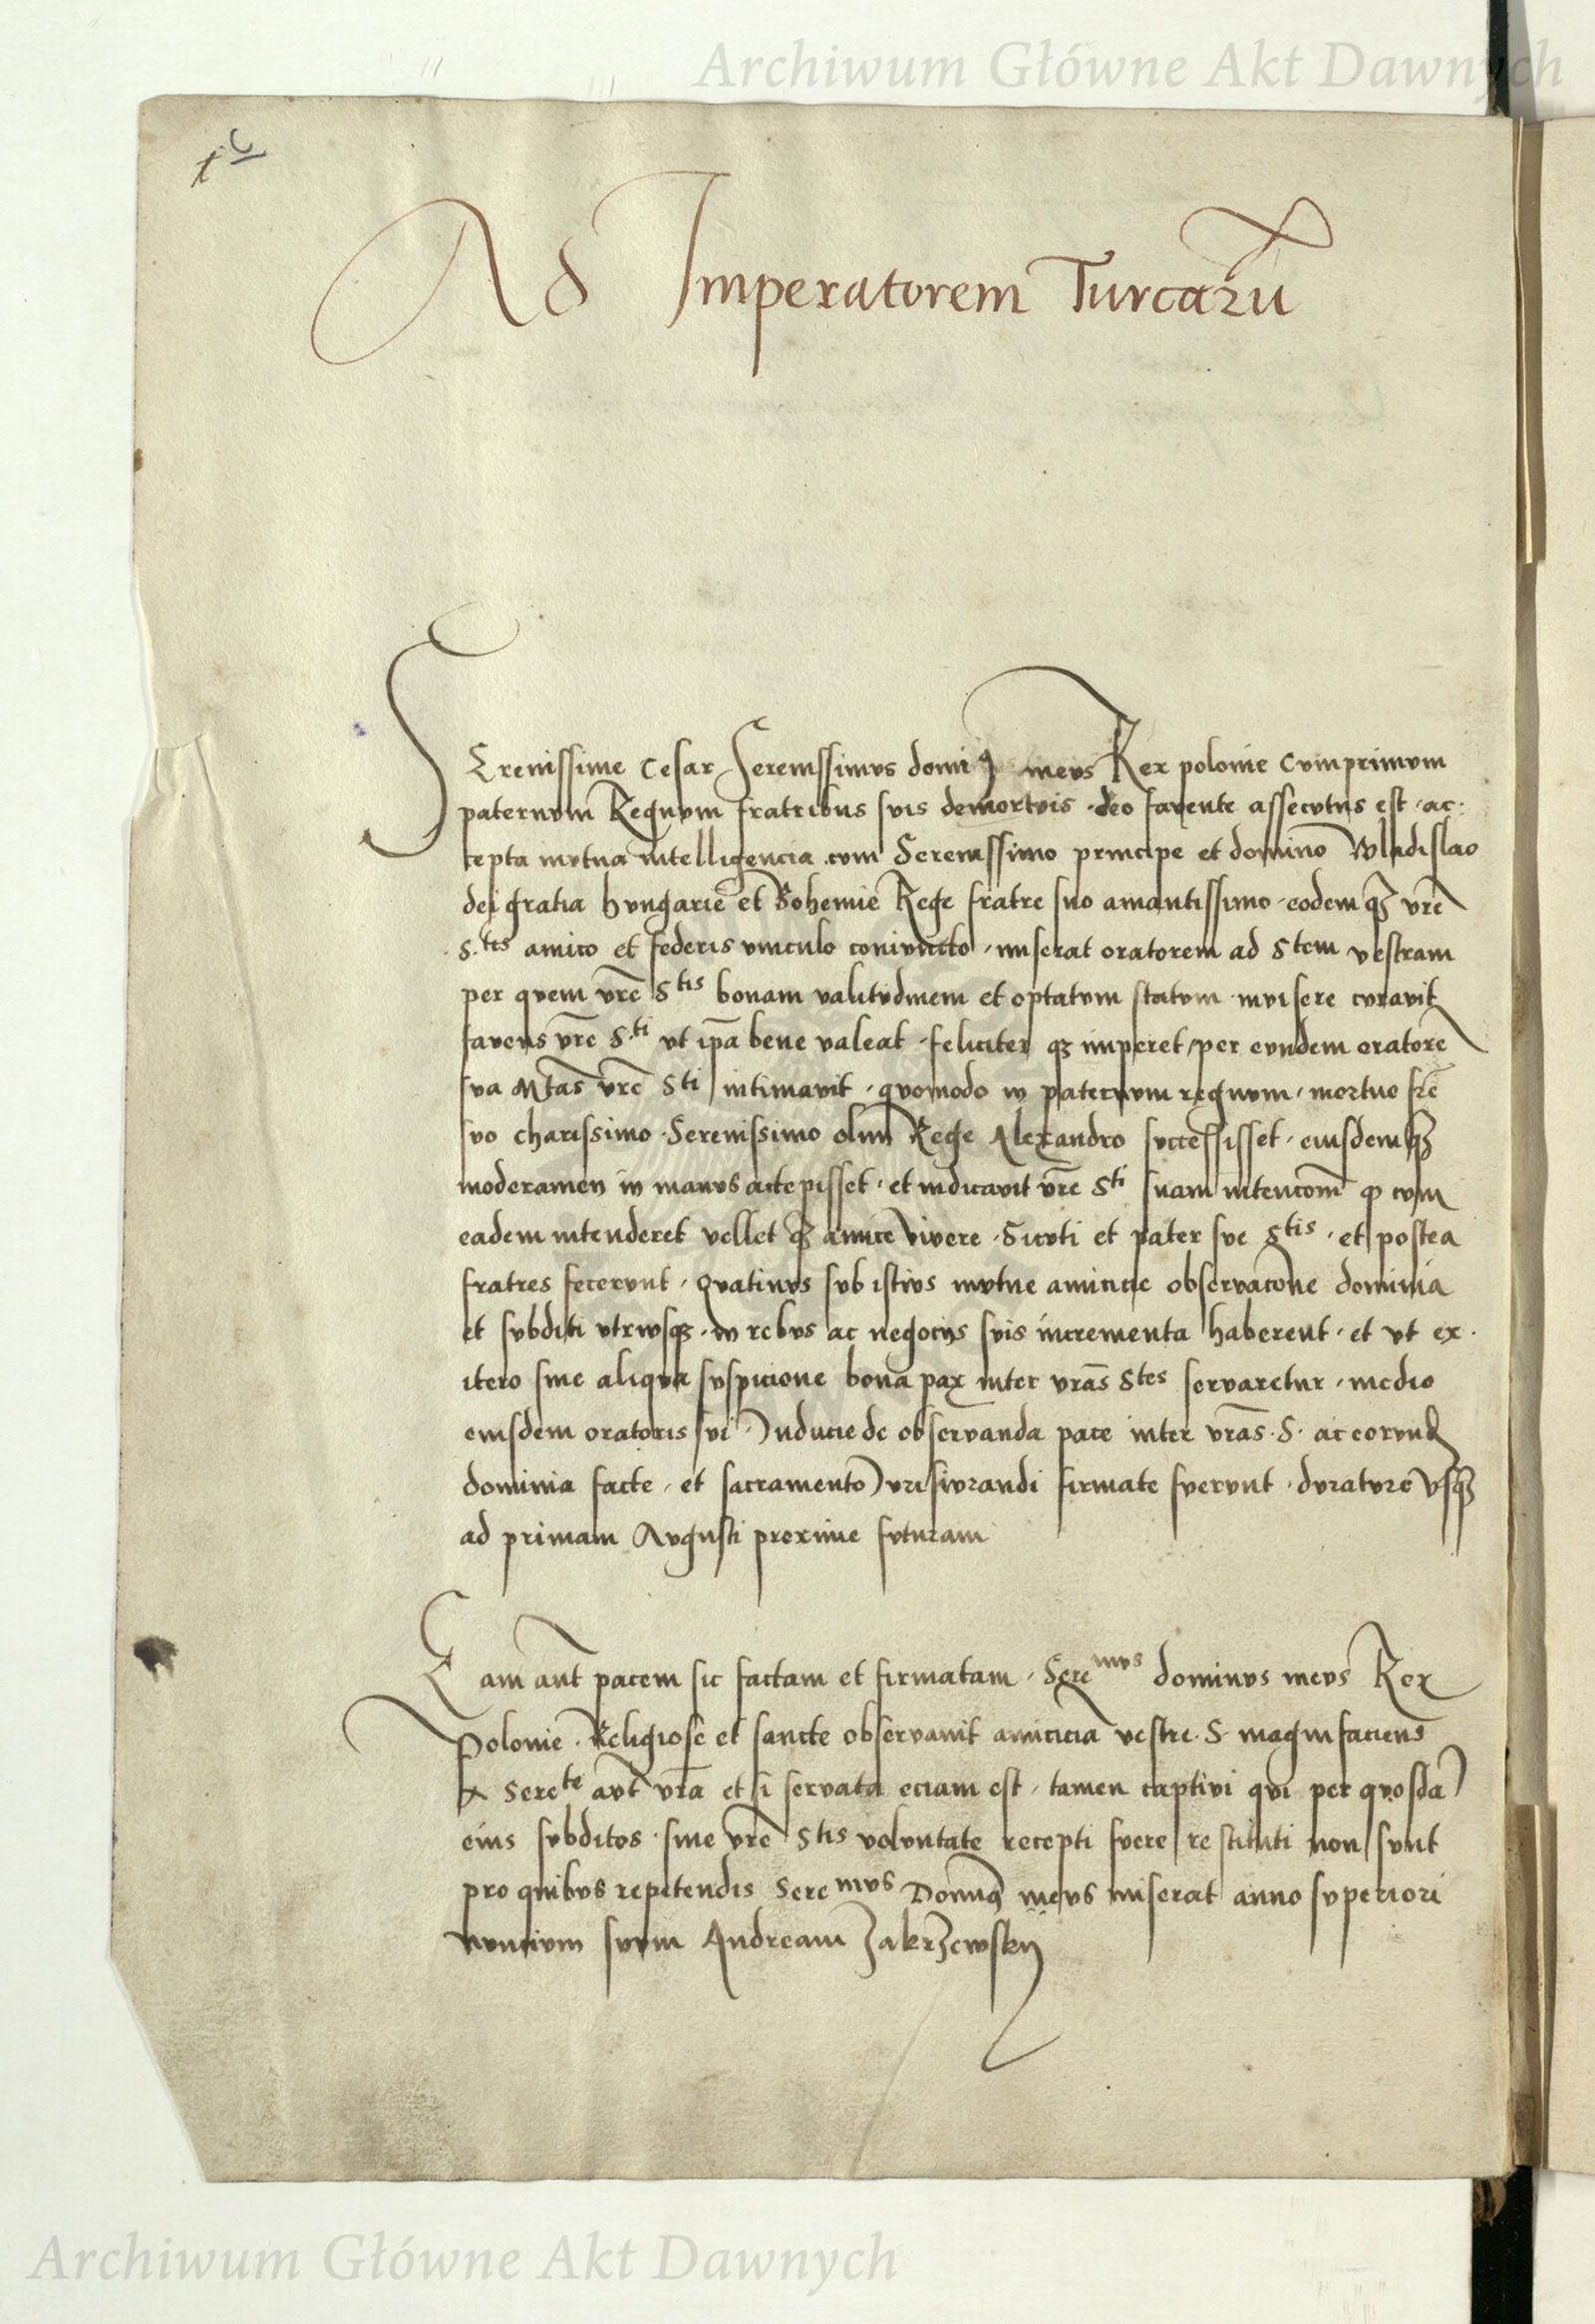 Archiwum Główne Akt Dawnych
Ad Imperatorem Turcaꝝ
SErenissime Cesar Serenissimvs dominꝰ mevs Rex polonie cvmprimvm
paternvm Regnvm fratribus svis demortvis · deo favente assecvtus est · ac·
cepta mvtua intelligencia cvm Serenissimo principe et domino Wladislao
dei gratia hvngarie et Bohemie Rege fratre suo amantissimo · eodemqꝫ vr̄e
S.tis amico et federis vinculo conivncto · miserat oratorem ad Stem vestram
per qvem vr̄e Stis bonam valitvdinem et optatvm statvm invisere cvravit
favens vr̄e S.ti vt ip̄a bene valeat · feliciter qꝫ imperet / per evndem oratorē
sva Mtas vr̄e Sti intimavit · qvomodo in paternvm regnvm · mortuo fr̄e
svo charissimo · Serenissimo olim Rege Alexandro svccessisset · eiusdemqꝫ
moderamen in manvs accepisset · et indicavit vr̄e Sti suam intencōm ꝙ cvm
eadem intenderet velletqꝫ amice vivere · Sicvti et pater sve Stis · et postea
fratres fecervnt · Qvatinvs svb istivs mvtue amicicie observacōne dominia
et svbditi vtrivsqꝫ · in rebvs ac negociis svis incrementa haberent · et vt ex·
itero sine aliqva svspicione bona pax inter vrās Stes servaretur · medio
eiusdem oratoris svi · Inducie de observanda pace inter vrās · S · ac eorvnd
dominia facte · et sacramento Ivrisivrandi firmate fvervnt · dvratvre vsqꝫ
ad primam Avgusti proxime fvturam
Eam aut pacem sic factam et firmatam · Seremvs dominvs mevs Rex
Polonie · Religiose et sancte observavit amiciciā vestre · S · magni faciens
A Serete avt vrā et si servata eciam est · tamen captivi qvi per qvosdā
eius svbditos · sine vr̄e Stis volvntate recepti fvere restituti non svnt
pro quibvs repetendis Seremvs Domīnꝰ mevs miserat anno svperiori
nvncivm svvm Andream Zakrzewsky
Archiwum Główne Akt Dawnych